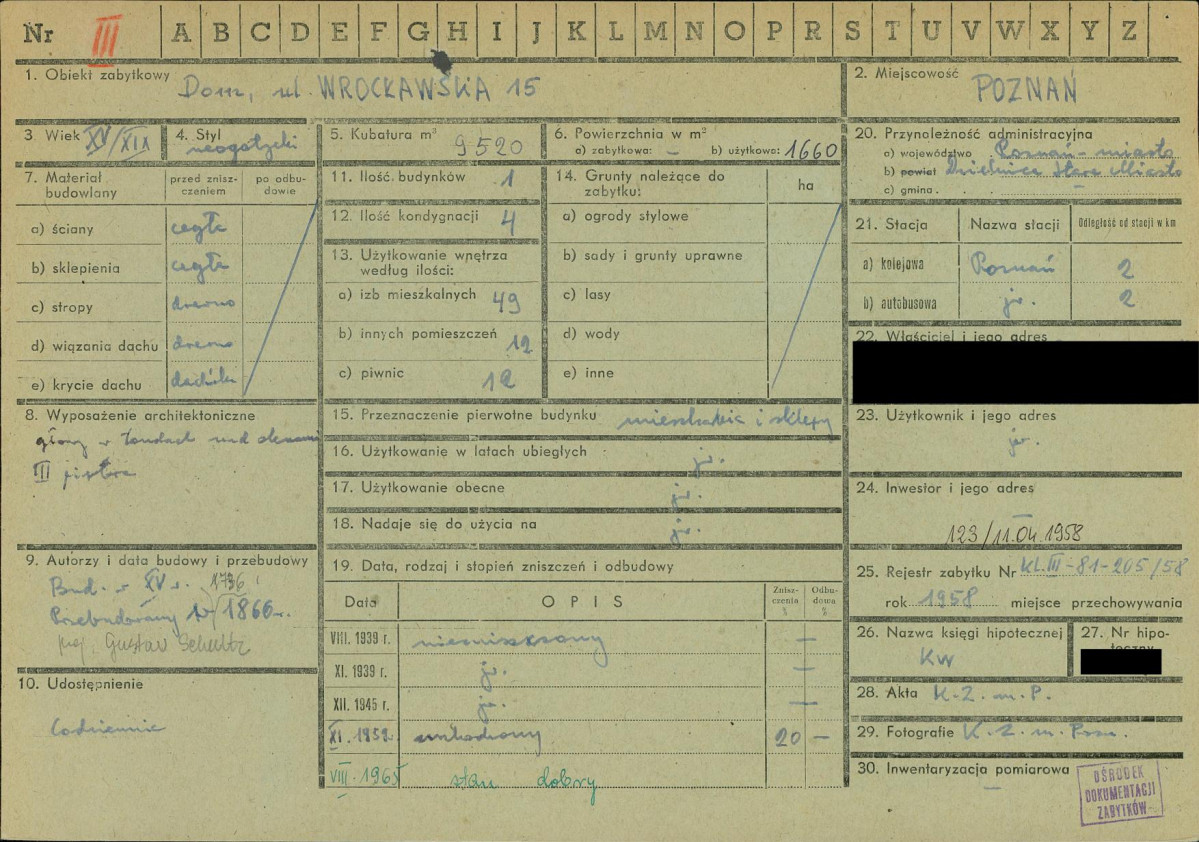 Nr III A B C D E F G H I J K L M N O P R S T U V W X Y Z
1. Obiekt zabytkowy Dom, ul. WROCŁAWSKA 15
2. Miejscowość POZNAŃ
3. Wiek XV/XIX
4. Styl neogotycki
5. Kubatura m³ 9520
6. Powierzchnia w m²
a) zabytkowa: – b) użytkowa: 1660
7. Materiał budowlany
przed zniszczeniem
po odbudowie
a) ściany cegła
b) sklepienia cegła
c) stropy drewno
d) wiązania dachu drewno
e) krycie dachu dachówka
8. Wyposażenie architektoniczne
głowy w tondach nad oknami
III piętra
9. Autorzy i data budowy i przebudowy
Bud. w XV w. 1796
Przebudowany 1866 r.
proj. Gustav Schultz
10. Udostępnienie
Codziennie
11. Ilość budynków 1
12. Ilość kondygnacji 4
13. Użytkowanie wnętrza
według ilości:
a) izb mieszkalnych 49
b) innych pomieszczeń 12
c) piwnic 12
14. Grunty należące do
zabytku:
ha
a) ogrody stylowe
b) sady i grunty uprawne
c) lasy
d) wody
e) inne
15. Przeznaczenie pierwotne budynku mieszkanie i sklepy
16. Użytkowanie w latach ubiegłych jw.
17. Użytkowanie obecne jw.
18. Nadaje się do użycia na jw.
19. Data, rodzaj i stopień zniszczeń i odbudowy
Data OPIS Zniszczenia % Odbudowa %
VIII. 1939 r. niezniszczony —
XI. 1939 r. jw. —
XII. 1945 r. jw. —
XI. 1952 20 –
VIII. 1965 stan dobry
20. Przynależność administracyjna
a) województwo Poznań-miasto
b) powiat Dzielnica Stare Miasto
c) gmina. –
21. Stacja Nazwa stacji Odległość od stacji w km
a) kolejowa Poznań 2
b) autobusowa jw. 2
22. Właściciel i jego adres
23. Użytkownik i jego adres
jw.
24. Inwestor i jego adres
–
123/11.04.1958
25. Rejestr zabytku Nr KL.III-81-205/58
rok 1958 miejsce przechowywania
26. Nazwa księgi hipotecznej
KW
27. Nr hipoteczny
28. Akta K.Z.m.P.
29. Fotografie K.Z.m.Pozn.
30. Inwentaryzacja pomiarowa
–
OŚRODEK
DOKUMENTACJI
ZABYTKÓW